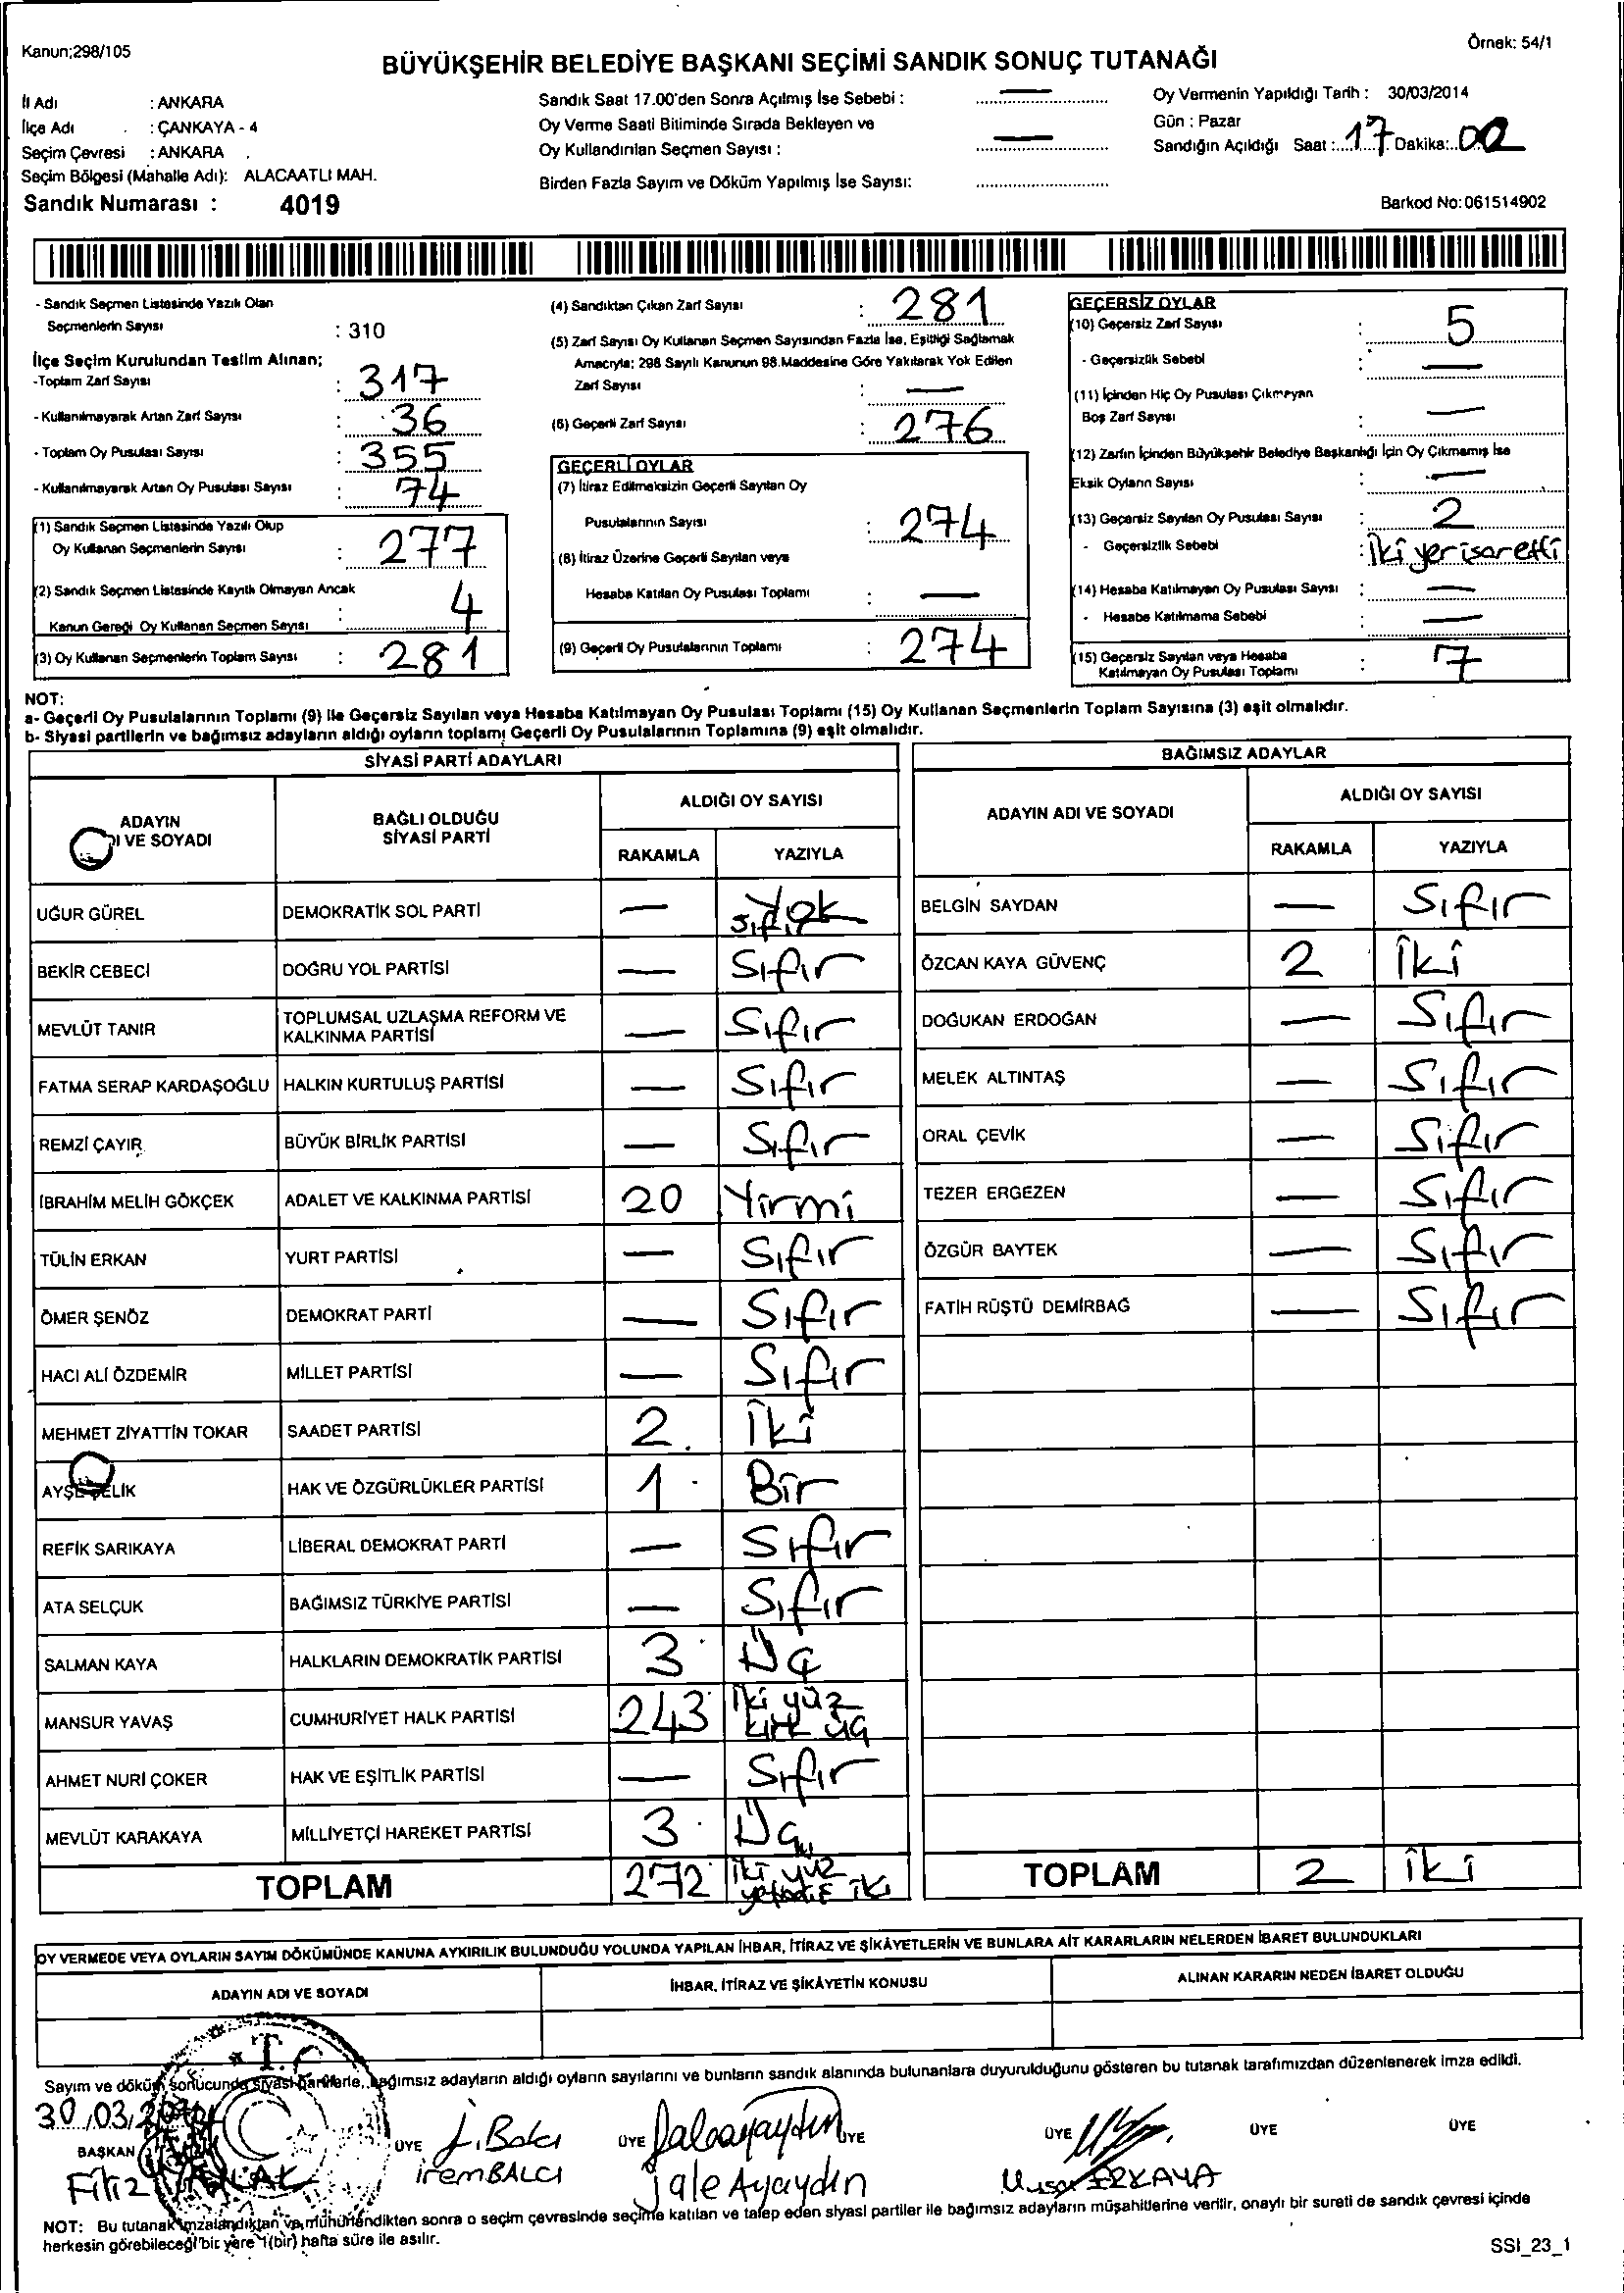 Kanun;298/105
Örnek: 54/1
BÜYÜKŞEHİR BELEDİYE BAŞKANI SEÇİMİ SANDIK SONUÇ TUTANAĞI
İl Adı : ANKARA
İlçe Adı : ÇANKAYA - 4
Seçim Çevresi : ANKARA
Seçim Bölgesi (Mahalle Adı): ALACAATLI MAH.
Sandık Numarası : 4019
Sandık Saat 17.00'den Sonra Açılmış İse Sebebi : —
Oy Verme Saati Bitiminde Sırada Bekleyen ve
Oy Kullandırılan Seçmen Sayısı : —
Birden Fazla Sayım ve Döküm Yapılmış İse Sayısı:
Oy Vermenin Yapıldığı Tarih : 30/03/2014
Gün : Pazar
Sandığın Açıldığı Saat : 17 Dakika: 00
Barkod No:061514902
- Sandık Seçmen Listesinde Yazılı Olan
Seçmenlerin Sayısı : 310
İlçe Seçim Kurulundan Teslim Alınan;
-Toplam Zarf Sayısı : 317
- Kullanılmayarak Artan Zarf Sayısı : 36
- Toplam Oy Pusulası Sayısı : 355
- Kullanılmayarak Artan Oy Pusulası Sayısı : 74
(1) Sandık Seçmen Listesinde Yazılı Olup
Oy Kullanan Seçmenlerin Sayısı : 277
(2) Sandık Seçmen Listesinde Kayıtlı Olmayan Ancak
Kanun Gereği Oy Kullanan Seçmen Sayısı : 4
(3) Oy Kullanan Seçmenlerin Toplam Sayısı : 281
(4) Sandıktan Çıkan Zarf Sayısı : 281
(5) Zarf Sayısı Oy Kullanan Seçmen Sayısından Fazla İse, Eşitliği Sağlamak
Amacıyla; 298 Sayılı Kanunun 98.Maddesine Göre Yakılarak Yok Edilen
Zarf Sayısı : —
(6) Geçerli Zarf Sayısı : 276
GEÇERLİ OYLAR
(7) İtiraz Edilmeksizin Geçerli Sayılan Oy
Pusulalarının Sayısı : 274
(8) İtiraz Üzerine Geçerli Sayılan veya
Hesaba Katılan Oy Pusulası Toplamı : —
(9) Geçerli Oy Pusulalarının Toplamı : 274
GEÇERSİZ OYLAR
(10) Geçersiz Zarf Sayısı : 5
- Geçersizlik Sebebi : —
(11) İçinden Hiç Oy Pusulası Çıkmayan
Boş Zarf Sayısı : —
(12) Zarfın İçinden Büyükşehir Belediye Başkanlığı İçin Oy Çıkmamış İse
Eksik Oyların Sayısı : —
(13) Geçersiz Sayılan Oy Pusulası Sayısı : 2
- Geçersizlik Sebebi : İki yer işaretli
(14) Hesaba Katılmayan Oy Pusulası Sayısı : —
- Hesaba Katılmama Sebebi : —
(15) Geçersiz Sayılan veya Hesaba
Katılmayan Oy Pusulası Toplamı : 7
NOT:
a- Geçerli Oy Pusulalarının Toplamı (9) ile Geçersiz Sayılan veya Hesaba Katılmayan Oy Pusulası Toplamı (15) Oy Kullanan Seçmenlerin Toplam Sayısına (3) eşit olmalıdır.
b- Siyasi partilerin ve bağımsız adayların aldığı oyların toplamı Geçerli Oy Pusulalarının Toplamına (9) eşit olmalıdır.
SİYASİ PARTİ ADAYLARI
ADAYIN
VE SOYADI
BAĞLI OLDUĞU
SİYASİ PARTİ
ALDIĞI OY SAYISI
RAKAMLA YAZIYLA
UĞUR GÜREL DEMOKRATİK SOL PARTİ — Yok sıfır
BEKİR CEBECİ DOĞRU YOL PARTİSİ — Sıfır
MEVLÜT TANIR TOPLUMSAL UZLAŞMA REFORM VE
KALKINMA PARTİSİ — Sıfır
FATMA SERAP KARDAŞOĞLU HALKIN KURTULUŞ PARTİSİ — Sıfır
REMZİ ÇAYIR BÜYÜK BİRLİK PARTİSİ — Sıfır
İBRAHİM MELİH GÖKÇEK ADALET VE KALKINMA PARTİSİ 20 Yirmi
TÜLİN ERKAN YURT PARTİSİ — Sıfır
ÖMER ŞENÖZ DEMOKRAT PARTİ — Sıfır
HACI ALİ ÖZDEMİR MİLLET PARTİSİ — Sıfır
MEHMET ZİYATTİN TOKAR SAADET PARTİSİ 2 İki
AYŞE ÇELİK HAK VE ÖZGÜRLÜKLER PARTİSİ 1 Bir
REFİK SARIKAYA LİBERAL DEMOKRAT PARTİ — Sıfır
ATA SELÇUK BAĞIMSIZ TÜRKİYE PARTİSİ — Sıfır
SALMAN KAYA HALKLARIN DEMOKRATİK PARTİSİ 3 Üç
MANSUR YAVAŞ CUMHURİYET HALK PARTİSİ 243 İki yüz
kırk üç
AHMET NURİ ÇOKER HAK VE EŞİTLİK PARTİSİ — Sıfır
MEVLÜT KARAKAYA MİLLİYETÇİ HAREKET PARTİSİ 3 Üç
TOPLAM 272 İki yüz
yetmiş iki
BAĞIMSIZ ADAYLAR
ADAYIN ADI VE SOYADI
ALDIĞI OY SAYISI
RAKAMLA YAZIYLA
BELGİN SAYDAN — Sıfır
ÖZCAN KAYA GÜVENÇ 2 İki
DOĞUKAN ERDOĞAN — Sıfır
MELEK ALTINTAŞ — Sıfır
ORAL ÇEVİK — Sıfır
TEZER ERGEZEN — Sıfır
ÖZGÜR BAYTEK — Sıfır
FATİH RÜŞTÜ DEMİRBAĞ — Sıfır
TOPLAM 2 İki
OY VERMEDE VEYA OYLARIN SAYIM DÖKÜMÜNDE KANUNA AYKIRILIK BULUNDUĞU YOLUNDA YAPILAN İHBAR, İTİRAZ VE ŞİKÂYETLERİN VE BUNLARA AİT KARARLARIN NELERDEN İBARET BULUNDUKLARI
ADAYIN ADI VE SOYADI
İHBAR, İTİRAZ VE ŞİKÂYETİN KONUSU
ALINAN KARARIN NEDEN İBARET OLDUĞU
T.C.
Sayım ve döküm sonucunda siyasi partilerle, bağımsız adayların aldığı oyların sayılarını ve bunların sandık alanında bulunanlara duyurulduğunu gösteren bu tutanak tarafımızdan düzenlenerek imza edildi.
30/03/2014
BAŞKAN ÜYE ÜYE ÜYE ÜYE ÜYE ÜYE
İ.Balcı
Filiz
İrem BALCI
Jale Ayaydın
ERKAYA
NOT: Bu tutanak imzalandıktan ve mühürlendikten sonra o seçim çevresinde seçime katılan ve talep eden siyasi partiler ile bağımsız adayların müşahitlerine verilir, onaylı bir sureti de sandık çevresi içinde
herkesin görebileceği bir yere 1(bir) hafta süre ile asılır.
SSI_23_1